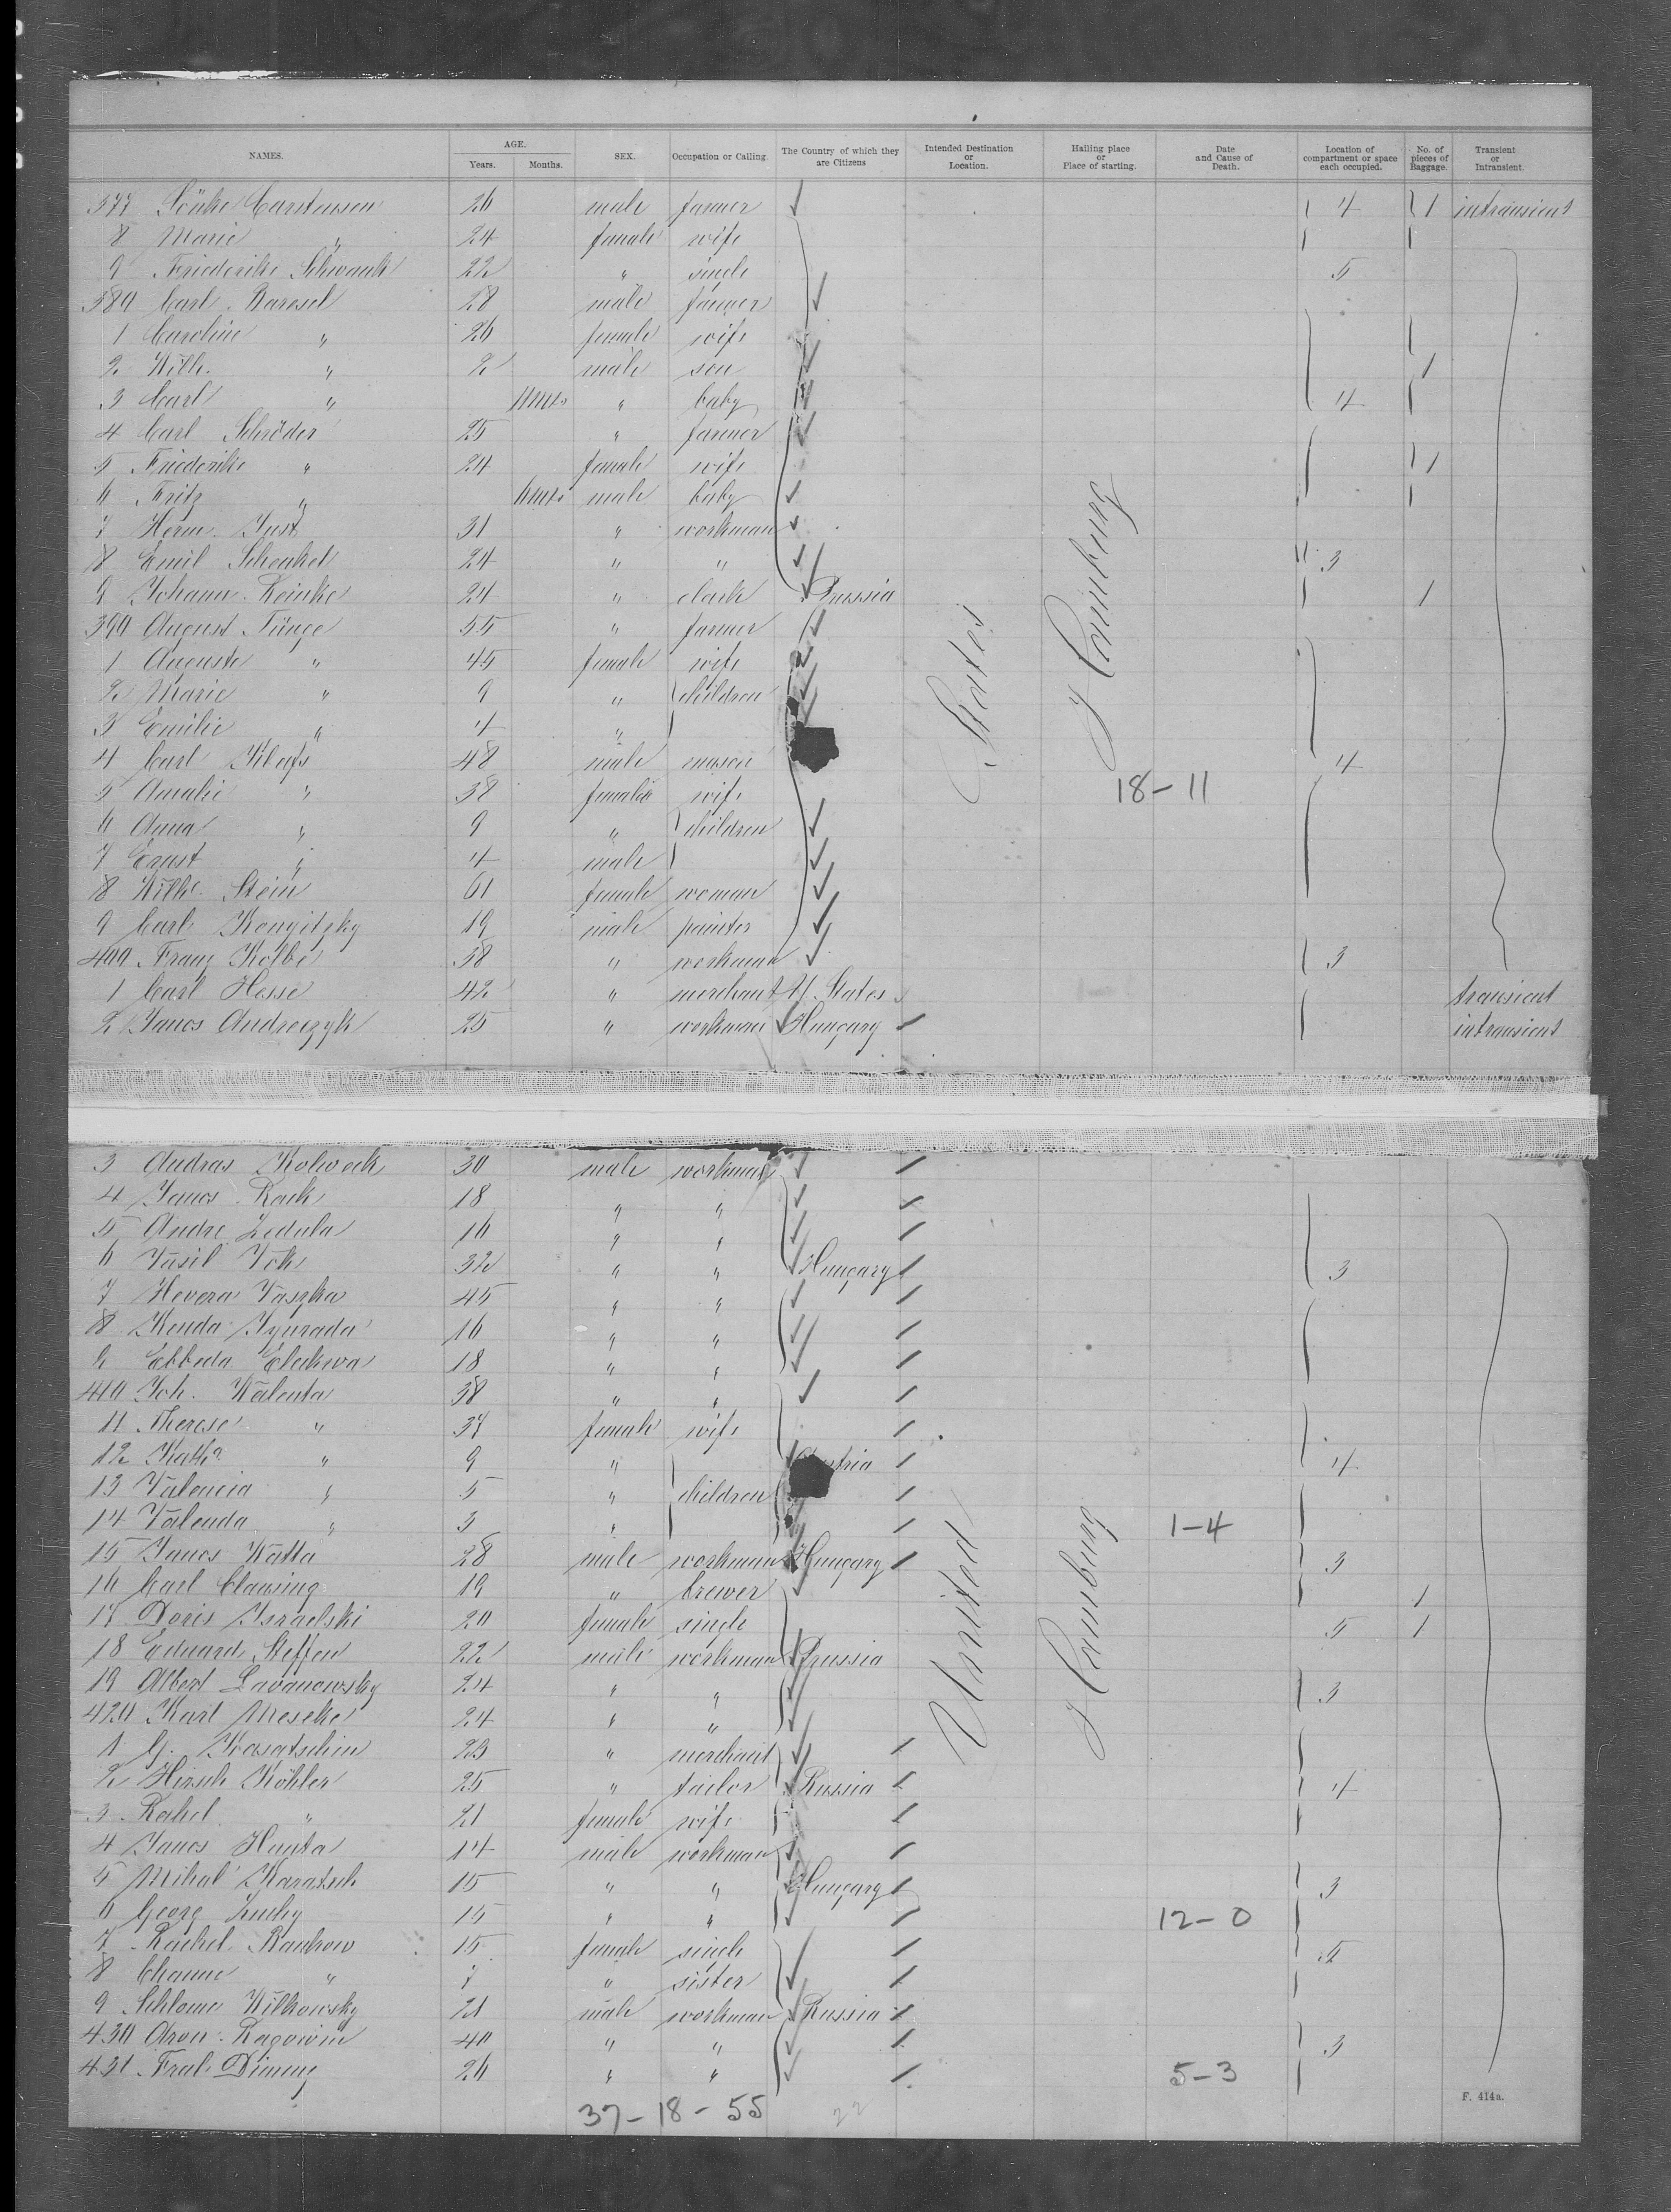 NAMES. AGE. Years. Months. SEX. Occupation or Calling. The Country of which they are Citizens Intended Destination or Location. Hailing place or Place of starting. Date and Cause of Death. Location of compartment or space each occupied. No. of pieces of Baggage. Transient or Intransient.
377 Sönke Carstensen 26 male farmer 4 1 intransient
8 Marie " 24 female wife
9 Friederike Schwank 22 " single 5
380 Carl 28 male farmer
1 Caroline " 26 female wife
2 Wilh. " 2 male son 1
3 Carl " 11mts " baby 4
4 Carl Schröder 25 " farmer
5 Friederike " 24 female wife 1
6 Fritz " 6mts male baby
7 Herm. Just 31 " workman
8 Emil Schenkel 24 " " 3
9 Johann Reinke 24 " clerk Prussia 1
390 August Tünge 55 " farmer
1 Auguste " 45 female wife
2 Marie " 9 " children
3 Emilie " 4 "
4 Carl 48 male mason 4
5 Amalie " 38 female wife
18-11
6 Anna " 9 " children
7 Ernst " 4 male
8 Wilhe. Stein 61 female woman
9 Carl 19 male painter
400 Franz Kolbe 38 " workman 3
1 Carl Hesse 42 " merchant U. States transient
2 Janos Andreczyk 25 " workman Hungary intransient
States
Hamburg
3 Andras Kolweck 30 male workman
4 Janos Rack 18 " "
5 Andre Zedula 16 " "
6 Vasil 32 " " Hungary 3
7 Hevera Vaszka 45 " "
8 Kenda 16 " "
9 Ebbeda 18 " "
410 Joh. Walenta 38 " "
11 Therese " 37 female wife
12 Kath. " 9 " 4
13 Valencia " 5 " children
14 Valenda " 3 "
1-4
15 Janos Watta 28 male workman Hungary 3
16 Carl Clausing 19 " brewer 1
17 Doris Israelski 20 female single 5 1
18 Eduard Steffen 22 male workman Prussia
19 Albert Lavanowsky 24 " " 3
420 Karl Meseke 24 " "
1 G. Kasatschin 23 " merchant
2 Hirsch Köhler 25 " tailor Russia 4
3 Rahel " 21 female wife
4 Janos Hunta 14 male workman
5 Mihal Karatsch 15 " " Hungary 3
6 Georg 15 " "
12-0
7 Rachel Rachow 15 female single 5
8 Channe " 7 " sister
9 Schlome Wilkowsky 21 male workman Russia
430 Aron Ragowin 40 " " 3
431 26 " "
5-3
United
Hamburg
37-18-55 22
F. 414a.